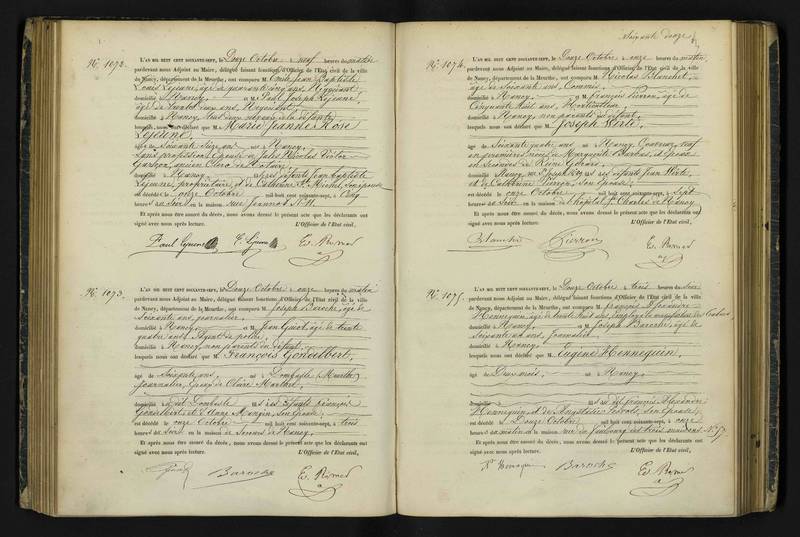 Soixante douze
N° 1072.
L'AN MIL HUIT CENT SOIXANTE-SEPT, le Douze Octobre à neuf heures du matin
pardevant nous Adjoint au Maire, délégué faisant fonctions d'Officier de l'État civil de la ville
de Nancy, département de la Meurthe, ont comparu M. Emile Jean Baptiste
Louis Lejeune, âgé de quarante cinq ans, Négociant
domicilié à Nancy et M. Paul Joseph Lejeune,
âgé de ans, Négociant
domicilié à Nancy, de la défunte
lesquels nous ont déclaré que M. Marie Jeanne Rose
Lejeune,
âgée de Soixante ans née à Nancy,
sans profession, Epouse de Jules Nicolas Victor
ancien Clerc de Notaire,
domiciliée à Nancy Jean Baptiste
Lejeune, propriétaire, et de Catherine St Michel, son épouse
est décédée le onze Octobre mil huit cent soixante-sept, à Cinq
heures du Soir en la maison rue Jeannot N° 11.
Et après nous être assuré du décès, nous avons dressé le présent acte que les déclarants ont
signé avec nous après lecture. L'Officier de l'État civil,
Paul Lejeune E. Lejeune
N° 1073.
L'AN MIL HUIT CENT SOIXANTE-SEPT, le Douze Octobre à onze heures du matin
pardevant nous Adjoint au Maire, délégué faisant fonctions d'Officier de l'État civil de la ville
de Nancy, département de la Meurthe, ont comparu M. Joseph Baroche, âgé de
Soixante ans, journalier,
domicilié à Nancy et M. Jean Guiot, âgé de trente
quatre ans, Agent de police,
domicilié à Nancy, non parents du défunt
lesquels nous ont déclaré que M. François Gondelbert,
âgé de Soixante ans, né à Dombasle (Meurthe)
journalier, Epoux de Claire
domicilié à Dombasle et fils des défunts François
Gondelbert et d'Anne Mengin, son épouse;
est décédé le onze Octobre mil huit cent soixante-sept, à trois
heures du Soir en la maison de Secours de Nancy.
Et après nous être assuré du décès, nous avons dressé le présent acte que les déclarants ont
signé avec nous après lecture. L'Officier de l'État civil,
Baroche
N° 1074.
L'AN MIL HUIT CENT SOIXANTE-SEPT, le Douze Octobre à onze heures du matin
pardevant nous Adjoint au Maire, délégué faisant fonctions d'Officier de l'État civil de la ville
de Nancy, département de la Meurthe, ont comparu M. Nicolas Blanchet,
âgé de Soixante ans, Commis,
domicilié à Nancy et M. François Pierron, âgé de
Cinquante huit ans,
domicilié à Nancy, non parents du défunt
lesquels nous ont déclaré que M. Joseph Wirté,
âgé de Soixante quatre ans né à Nancy, veuf
en premières noces de Marguerite Barbas, et époux
en secondes de Reine Gérard,
domicilié à Nancy, fils des défunts Jean Wirte,
et de Catherine Pierron, son épouse;
est décédé le onze Octobre mil huit cent soixante-sept, à Sept
heures du Soir en la maison de l'hôpital St Charles de Nancy
Et après nous être assuré du décès, nous avons dressé le présent acte que les déclarants ont
signé avec nous après lecture. L'Officier de l'État civil,
Blanchet Pierron
N° 1075.
L'AN MIL HUIT CENT SOIXANTE-SEPT, le Douze Octobre à trois heures du Soir
pardevant nous Adjoint au Maire, délégué faisant fonctions d'Officier de l'État civil de la ville
de Nancy, département de la Meurthe, ont comparu M. François Alexandre
Hennequin, âgé de trente huit ans, Employé à la manufacture des tabacs
domicilié à Nancy et M. Joseph Baroche, âgé de
Soixante ans, Journalier
domicilié à Nancy,
lesquels nous ont déclaré que M. Eugène Hennequin,
âgé de Deux mois, né à Nancy,
domicilié à et fils de François Alexandre
Hennequin, et de son épouse;
est décédé le Douze Octobre mil huit cent soixante-sept, à onze
heures du matin en la maison rue du faubourg des trois maisons N° 57.
Et après nous être assuré du décès, nous avons dressé le présent acte que les déclarants ont
signé avec nous après lecture. L'Officier de l'État civil,
Baroche